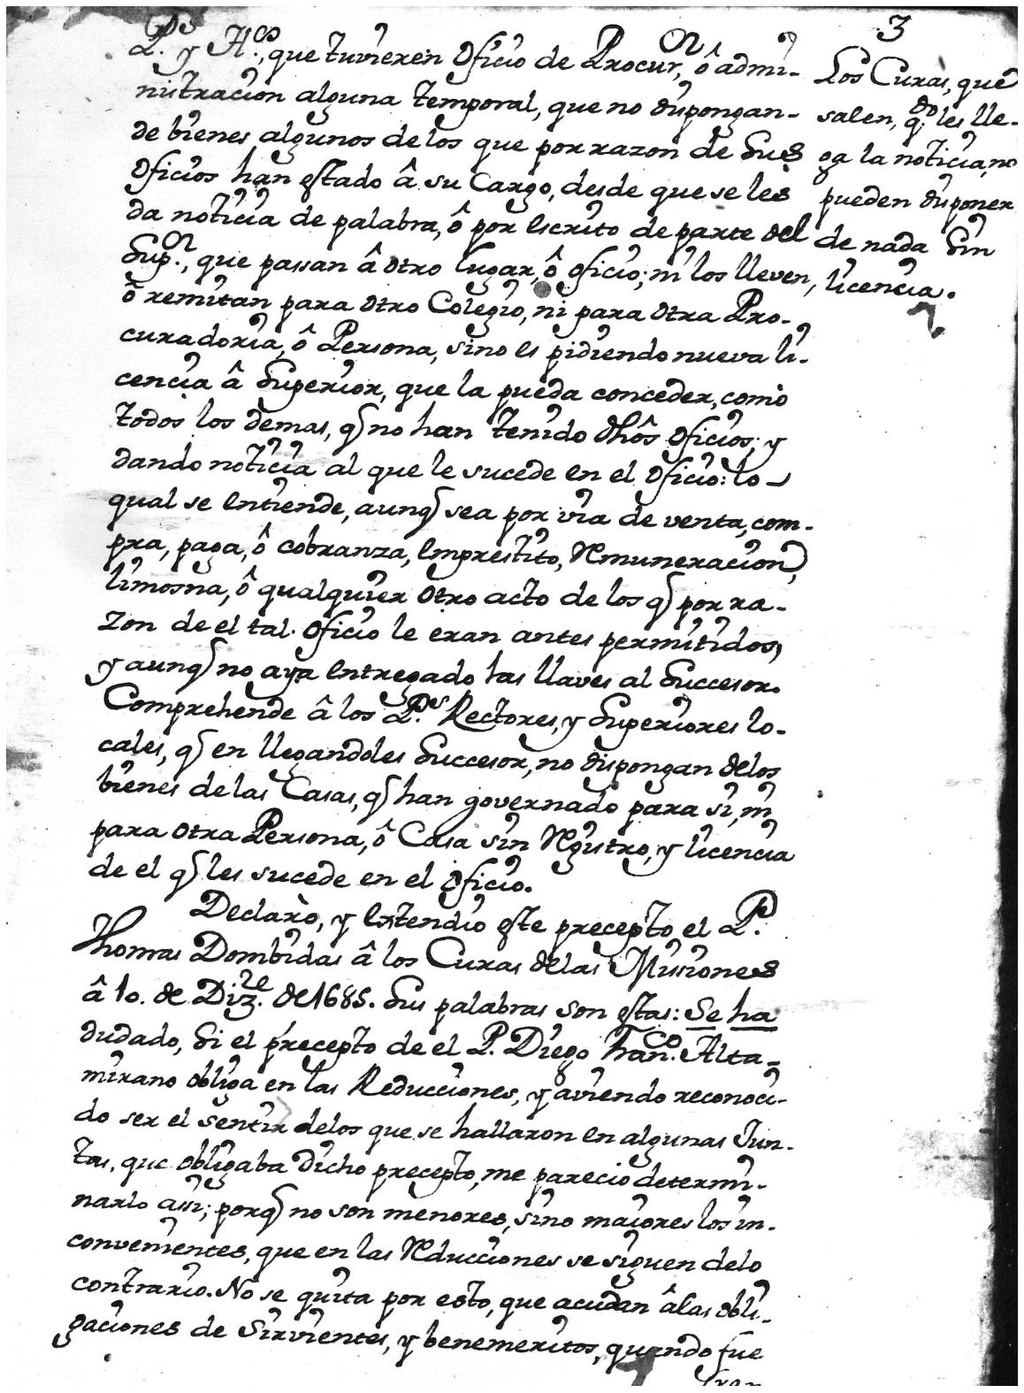 3
P.es y H.os, que tuvieren Oficio de Procur.or, ô admi-
nistracion alguna temporal, que no dispongan-
de bienes algunos de los que por razon de sus
Oficios han estado â su Cargo, desde que se les
da noticia de palabra, ô por escrito de parte del
Sup.or, que passan â otro lugar, ô oficio; ni los lleven,
ô remitan para otro Colegio, ni para otra Pro-
curadoria, ô Persona, sino es pidiendo nueva li-
cencia â Superior, que la pueda conceder, como
todos los demas, q̃ no han tenido dhôs Oficios; y
dando noticia al que le sucede en el Oficio: lo
qual se entiende, aunq̃ sea por via de venta, com-
pra, paga, ô cobranza, Emprestito, Remuneracion,
limosna, ô qualquier otro acto de los q̃ por ra-
zon de el tal Oficio le eran antes permitidos,
y aunq̃ no aya entregado las llaves al Successor.
Comprehende â los P.es Rectores, y Superiores lo-
cales, q̃ en llegandoles Successor, no dispongan de los
bienes de las Casas, q̃ han governado para si, ni
para otra Persona, ô Casa sin Registro, y licencia
de el q̃ les sucede en el Oficio.
Declarò, y extendiò este precepto el P.e
Thomas Dombidas â los Curas de las Missiones
â 10. de Diz.re de 1685. Sus palabras son estas: Se ha
dudado, si el precepto de el P. Diego Fran.co Alta-
mirano obliga en las Reducciones, y aviendo reconoci-
do ser el sentir de los que se hallaron en algunas Jun-
tas, que obligaba dicho precepto, me pareciò determi-
narlo assi; porq̃ no son menores, sino maiores los in-
convenientes, que en las Reducciones se siguen de lo
contrario. No se quita por esto, que acudan â las obli-
gaciones de sirvientes, y benemeritos, quando fue
Los Curas, que
salen, q.do les lle-
ga la noticia, no
pueden disponer
de nada sin
licencia.